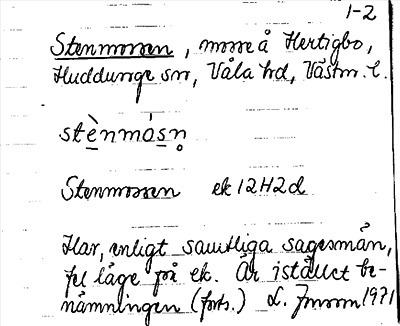 1-2
Stenmossen, mosse å Hertigbo,
Huddunge sn, Våla hd, Västm. l.
stènmósn̥
Stenmossen ek 12H2d
Har, enligt samtliga sagesmän,
fel läge på ek. Är istället be-
nämningen (forts.) L. 1971